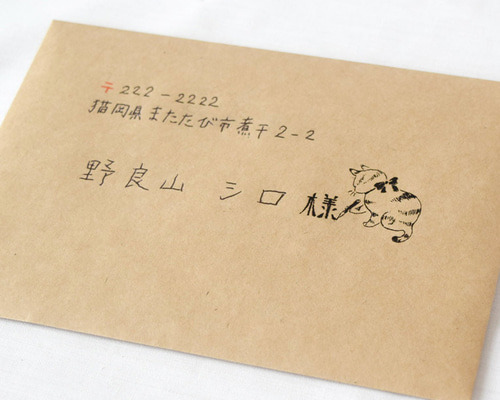 〒222-2222
猫岡県またたび市煮干2-2
野良山 シロ 様